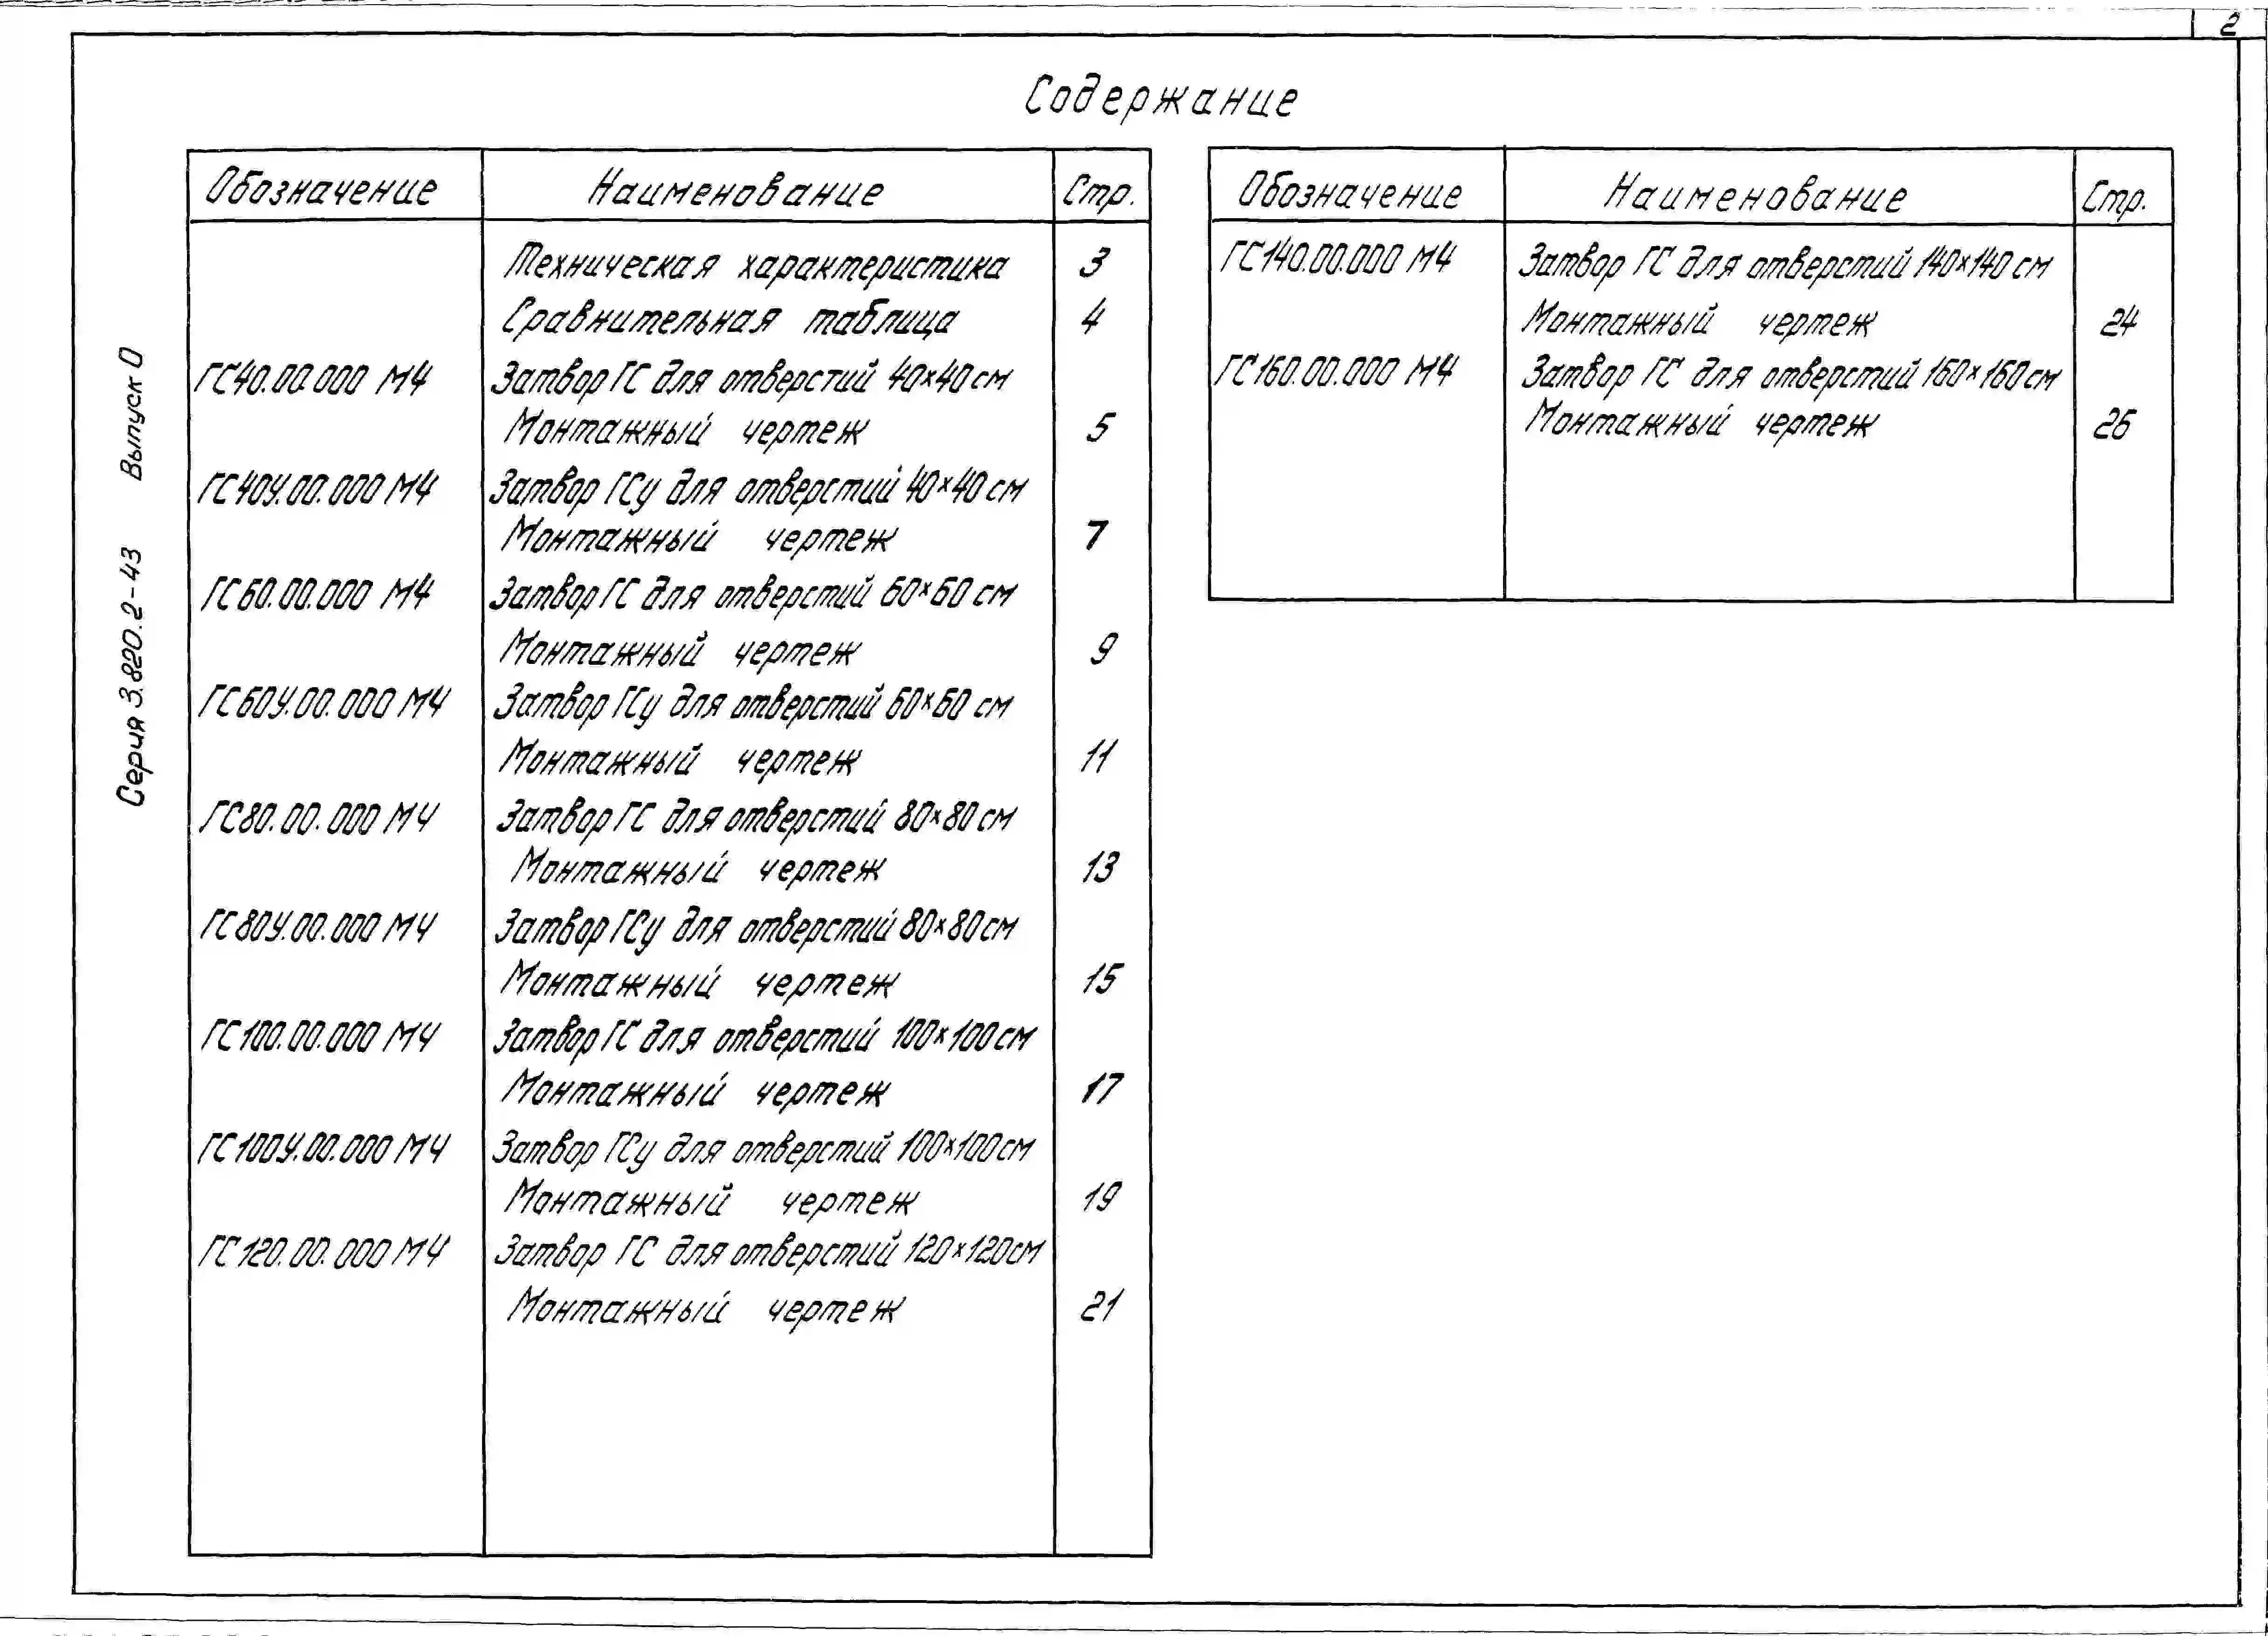 2
Содержание
Серия 3.820.2-43 Выпуск 0
Обозначение Наименование Стр.
Техническая характеристика 3
Сравнительная таблица 4
ГС40.00.000 МЧ Затвор ГС для отверстий 40×40 см
Монтажный чертеж 5
ГС40У.00.000 МЧ Затвор ГСу для отверстий 40×40 см
Монтажный чертеж 7
ГС60.00.000 МЧ Затвор ГС для отверстий 60×60 см
Монтажный чертеж 9
ГС60У.00.000 МЧ Затвор ГСу для отверстий 60×60 см
Монтажный чертеж 11
ГС80.00.000 МЧ Затвор ГС для отверстий 80×80 см
Монтажный чертеж 13
ГС80У.00.000 МЧ Затвор ГСу для отверстий 80×80 см
Монтажный чертеж 15
ГС100.00.000 МЧ Затвор ГС для отверстий 100×100 см
Монтажный чертеж 17
ГС100У.00.000 МЧ Затвор ГСу для отверстий 100×100 см
Монтажный чертеж 19
ГС120.00.000 МЧ Затвор ГС для отверстий 120×120 см
Монтажный чертеж 21
Обозначение Наименование Стр.
ГС140.00.000 МЧ Затвор ГС для отверстий 140×140 см
Монтажный чертеж 24
ГС160.00.000 МЧ Затвор ГС для отверстий 160×160 см
Монтажный чертеж 26